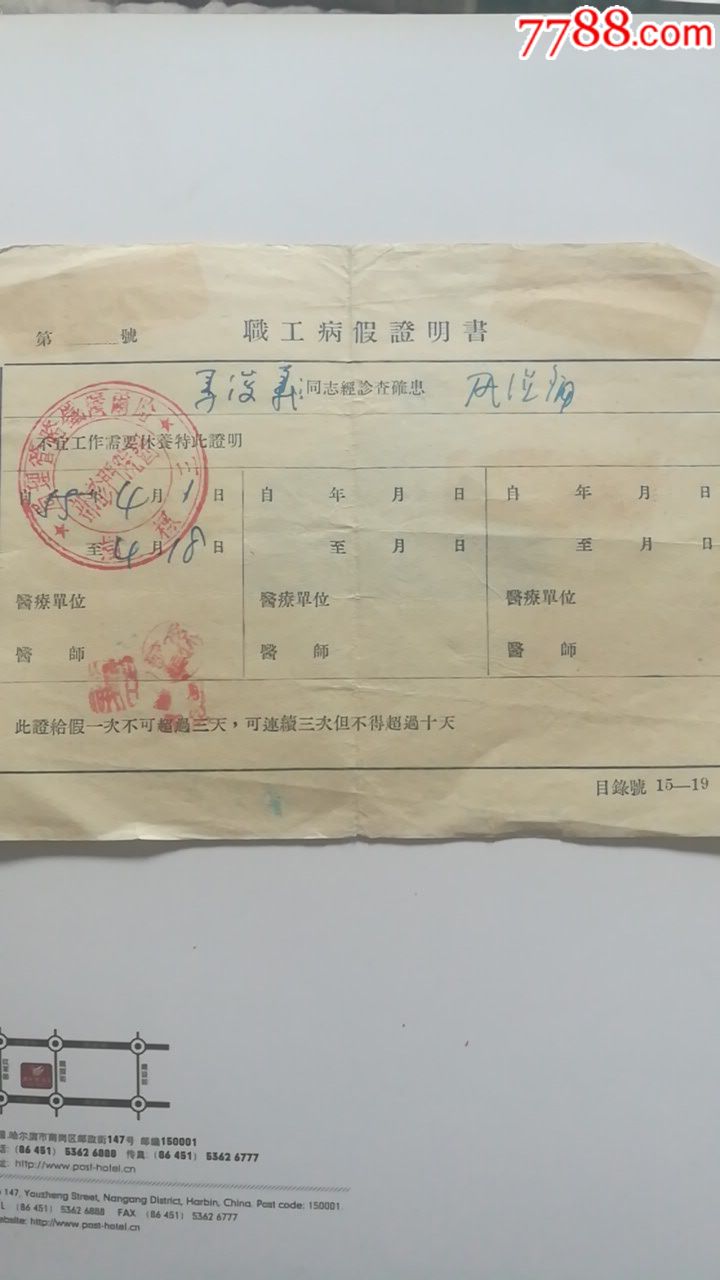 7788.com
第 號 職工病假證明書
義 同志經診查確患
不宜工作需要休養特此證明
自 55年 4月 1日 自 年 月 日 自 年 月 日
至 4月 18日 至 月 日 至 月 日
醫療單位 醫療單位 醫療單位
醫 師 醫 師 醫 師
此證給假一次不可超過三天，可連續三次但不得超過十天
目錄號 15—19
哈尔滨市南岗区邮政街147号 邮编150001
(86 451) 5362 6888 传真: (86 451) 5362 6777
http://www.post-hotel.cn
147, Youzheng Street, Nangang District, Harbin, China. Post code: 150001
(86 451) 5362 6888 FAX (86 451) 5362 6777
website: http://www.post-hotel.cn